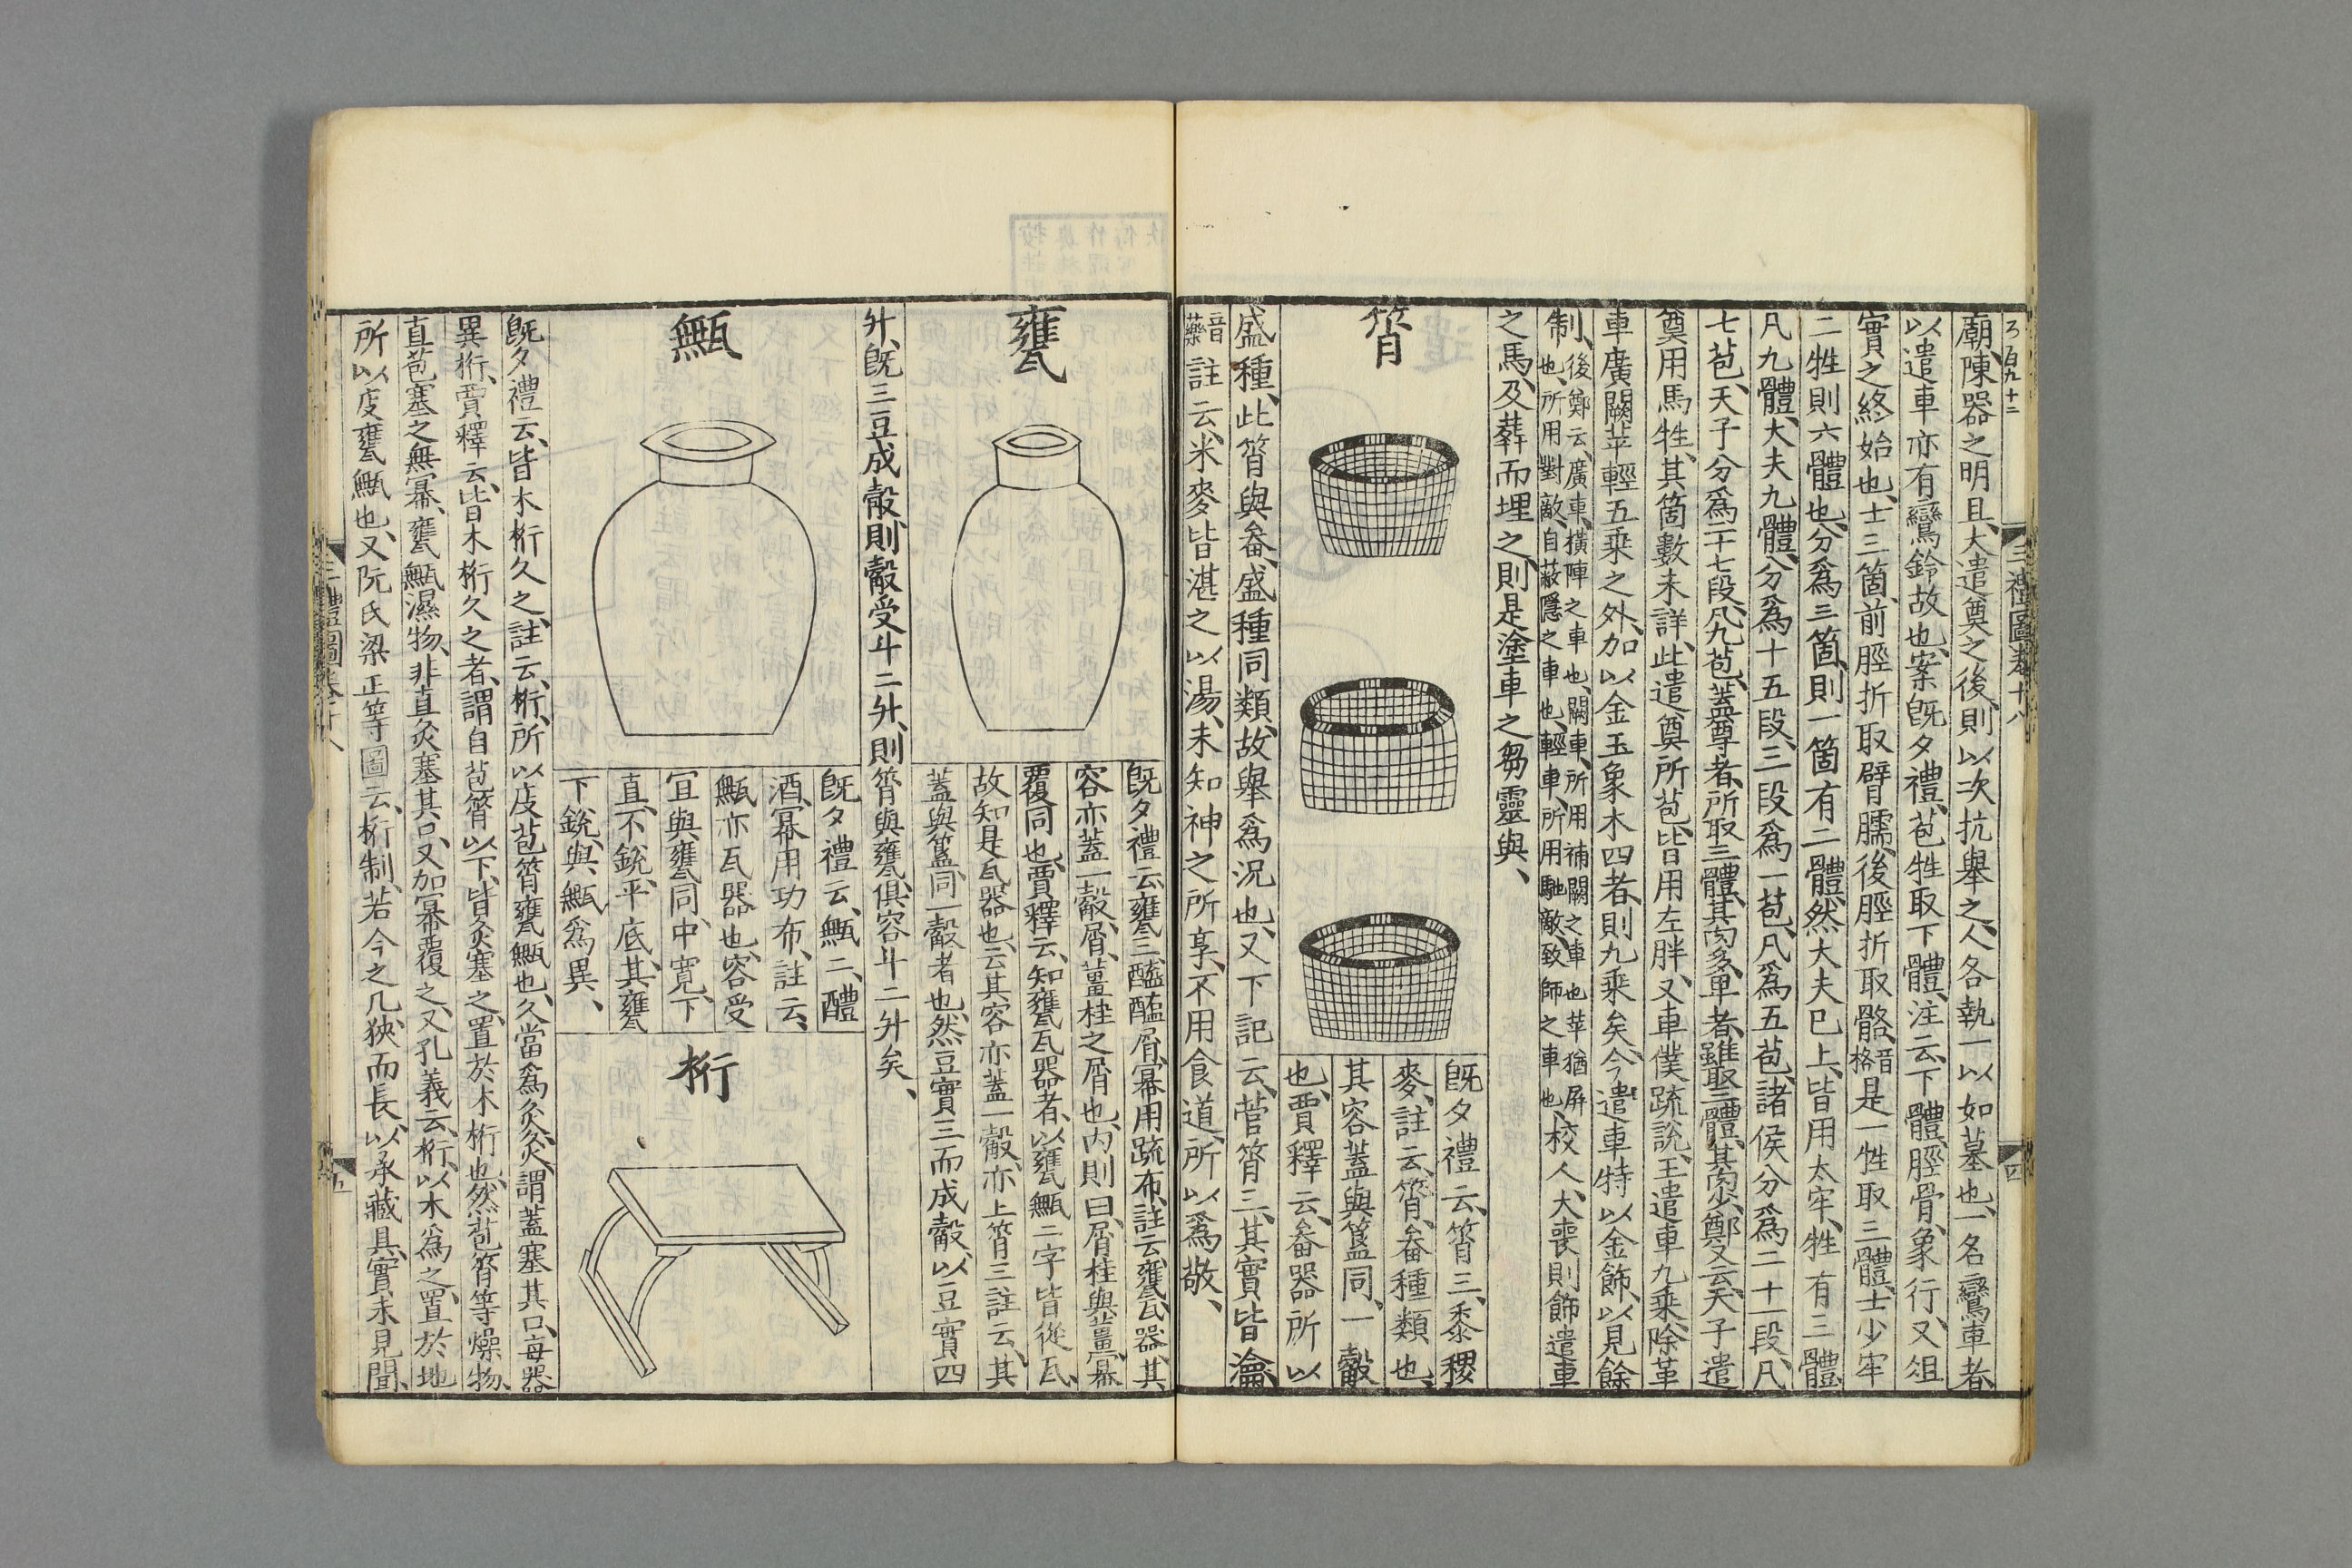 廟、陳器之明旦、大遣奠之後、則以次抗舉之、人各執一以如墓也、一名鸞車者、
以遣車亦有鸞鈴故也、案既夕禮、苞牲取下體、注云、下體、脛骨、象行、又俎
實之終始也、士三箇、前脛折取臂臑、後脛折取骼、音格是一牲取三體、士少牢
二牲則六體也、分為三箇、則一箇有二體、然大夫巳上、皆用太牢、牲有三體
凡九體、大夫九體、分為十五段、三段為一苞、凡為五苞、諸侯分為二十一段、凡
七苞、天子分為二十七段、凡九苞、蓋尊者、所取三體、其肉多、卑者、雖取三體、其肉少、鄭又云、天子遣
奠用馬牲、其箇數未詳、此遣奠所苞、皆用左胖、又車僕疏說、王遣車九乘、除革
車廣闕苹輕五乘之外、加以金玉象木四者、則九乘矣、今遣車特以金飾、以見餘
制、後鄭云、廣車、橫陣之車也、闕車、所用補闕之車也、苹猶屏
也、所用對敵、自蔽隱之車也、輕車、所用馳敵、致師之車也、校人、大喪則飾遣車
之馬、及葬而埋之、則是塗車之芻靈與、
筲
既夕禮云、筲三、黍稷
麥、註云、筲、畚種類也、
其容蓋與簋同、一觳
也、賈釋云、畚器所以
盛種、此筲與畚、盛種同類、故舉為況也、又下記云、菅筲三、其實皆瀹
音藥註云、米麥皆湛之以湯、未知神之所享、不用食道、所以為敬、
三禮圖卷十八
四
甕
既夕禮云、甕三、醯醢屑、冪用疏布、註云、甕、瓦器、其
容亦蓋一觳、屑、薑桂之屑也、內則曰、屑桂與薑、冪、
覆同也、賈釋云、知甕瓦器者、以甕甒二字皆從瓦、
故知是瓦器也、云其容亦蓋一觳、亦上筲三註云、其
蓋與簋同、一觳者也、然豆實三而成觳、以豆實四
升、既三豆成觳、則觳受斗二升、則筲與甕、俱容斗二升矣、
甒
既夕禮云、甒二、醴
酒、冪用功布、註云、
甒亦瓦器也、容受
宜與甕同、中寬、下
直、不銳、平底、其甕
下銳、與甒為異、
桁
既夕禮云、皆木桁久之、註云、桁、所以庋苞筲甕甒也、久當為灸、灸、謂蓋塞其口、每器
異桁、賈釋云、皆木桁久之者、謂自苞筲以下、皆灸塞之、置於木桁也、然苞筲等燥物、
直苞塞之無冪、甕甒濕物、非直灸塞其口、又加冪覆之、又孔義云、桁、以木為之、置於地
所以庋甕甒也、又阮氏梁正等圖云、桁制、若今之几、狹而長、以承藏具、實未見聞、
三禮圖卷十八
五